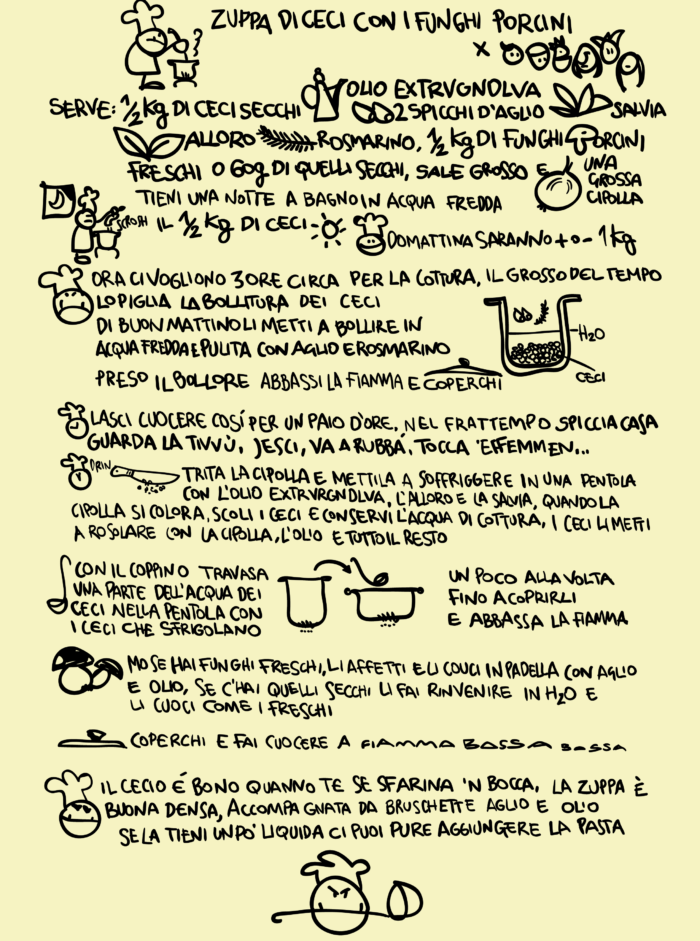 ZUPPA DI CECI CON I FUNGHI PORCINI
X
SERVE: 1/2 Kg DI CECI SECCHI OLIO EXTRVGNDLVA
2 SPICCHI D'AGLIO SALVIA
ALLORO ROSMARINO, 1/2 Kg DI FUNGHI PORCINI
FRESCHI O 60g DI QUELLI SECCHI, SALE GROSSO E UNA GROSSA CIPOLLA
TIENI UNA NOTTE A BAGNO IN ACQUA FREDDA
SCROSH IL 1/2 Kg DI CECI DOMATTINA SARANNO + O - 1 Kg
ORA CI VOGLIONO 3 ORE CIRCA PER LA COTTURA, IL GROSSO DEL TEMPO
LO PIGLIA LA BOLLITURA DEI CECI
DI BUON MATTINO LI METTI A BOLLIRE IN
ACQUA FREDDA E PULITA CON AGLIO E ROSMARINO
PRESO IL BOLLORE ABBASSI LA FIAMMA E COPERCHI
H2O
CECI
LASCI CUOCERE COSÍ PER UN PAIO D'ORE, NEL FRATTEMPO SPICCIA CASA
GUARDA LA TIVVÙ, JESCI, VA A RUBBÁ, TOCCA 'EFFEMMEN...
DRIN TRITA LA CIPOLLA E METTILA A SOFFRIGGERE IN UNA PENTOLA
CON L'OLIO EXTRVRGNDLVA, L'ALLORO E LA SALVIA, QUANDO LA
CIPOLLA SI COLORA, SCOLI I CECI E CONSERVI L'ACQUA DI COTTURA, I CECI LI METTI
A ROSOLARE CON LA CIPOLLA, L'OLIO E TUTTO IL RESTO
CON IL COPPINO TRAVASA
UNA PARTE DELL'ACQUA DEI
CECI NELLA PENTOLA CON
I CECI CHE SFRIGOLANO
UN POCO ALLA VOLTA
FINO A COPRIRLI
E ABBASSA LA FIAMMA
MO SE HAI FUNGHI FRESCHI, LI AFFETTI E LI CUOCI IN PADELLA CON AGLIO
E OLIO, SE C'HAI QUELLI SECCHI LI FAI RINVENIRE IN H2O E
LI CUOCI COME I FRESCHI
COPERCHI E FAI CUOCERE A FIAMMA BASSA BASSA
IL CECIO É BONO QUANNO TE SE SFARINA 'N BOCCA, LA ZUPPA È
BUONA DENSA, ACCOMPAGNATA DA BRUSCHETTE AGLIO E OLIO
SE LA TIENI UN PO' LIQUIDA CI PUOI PURE AGGIUNGERE LA PASTA